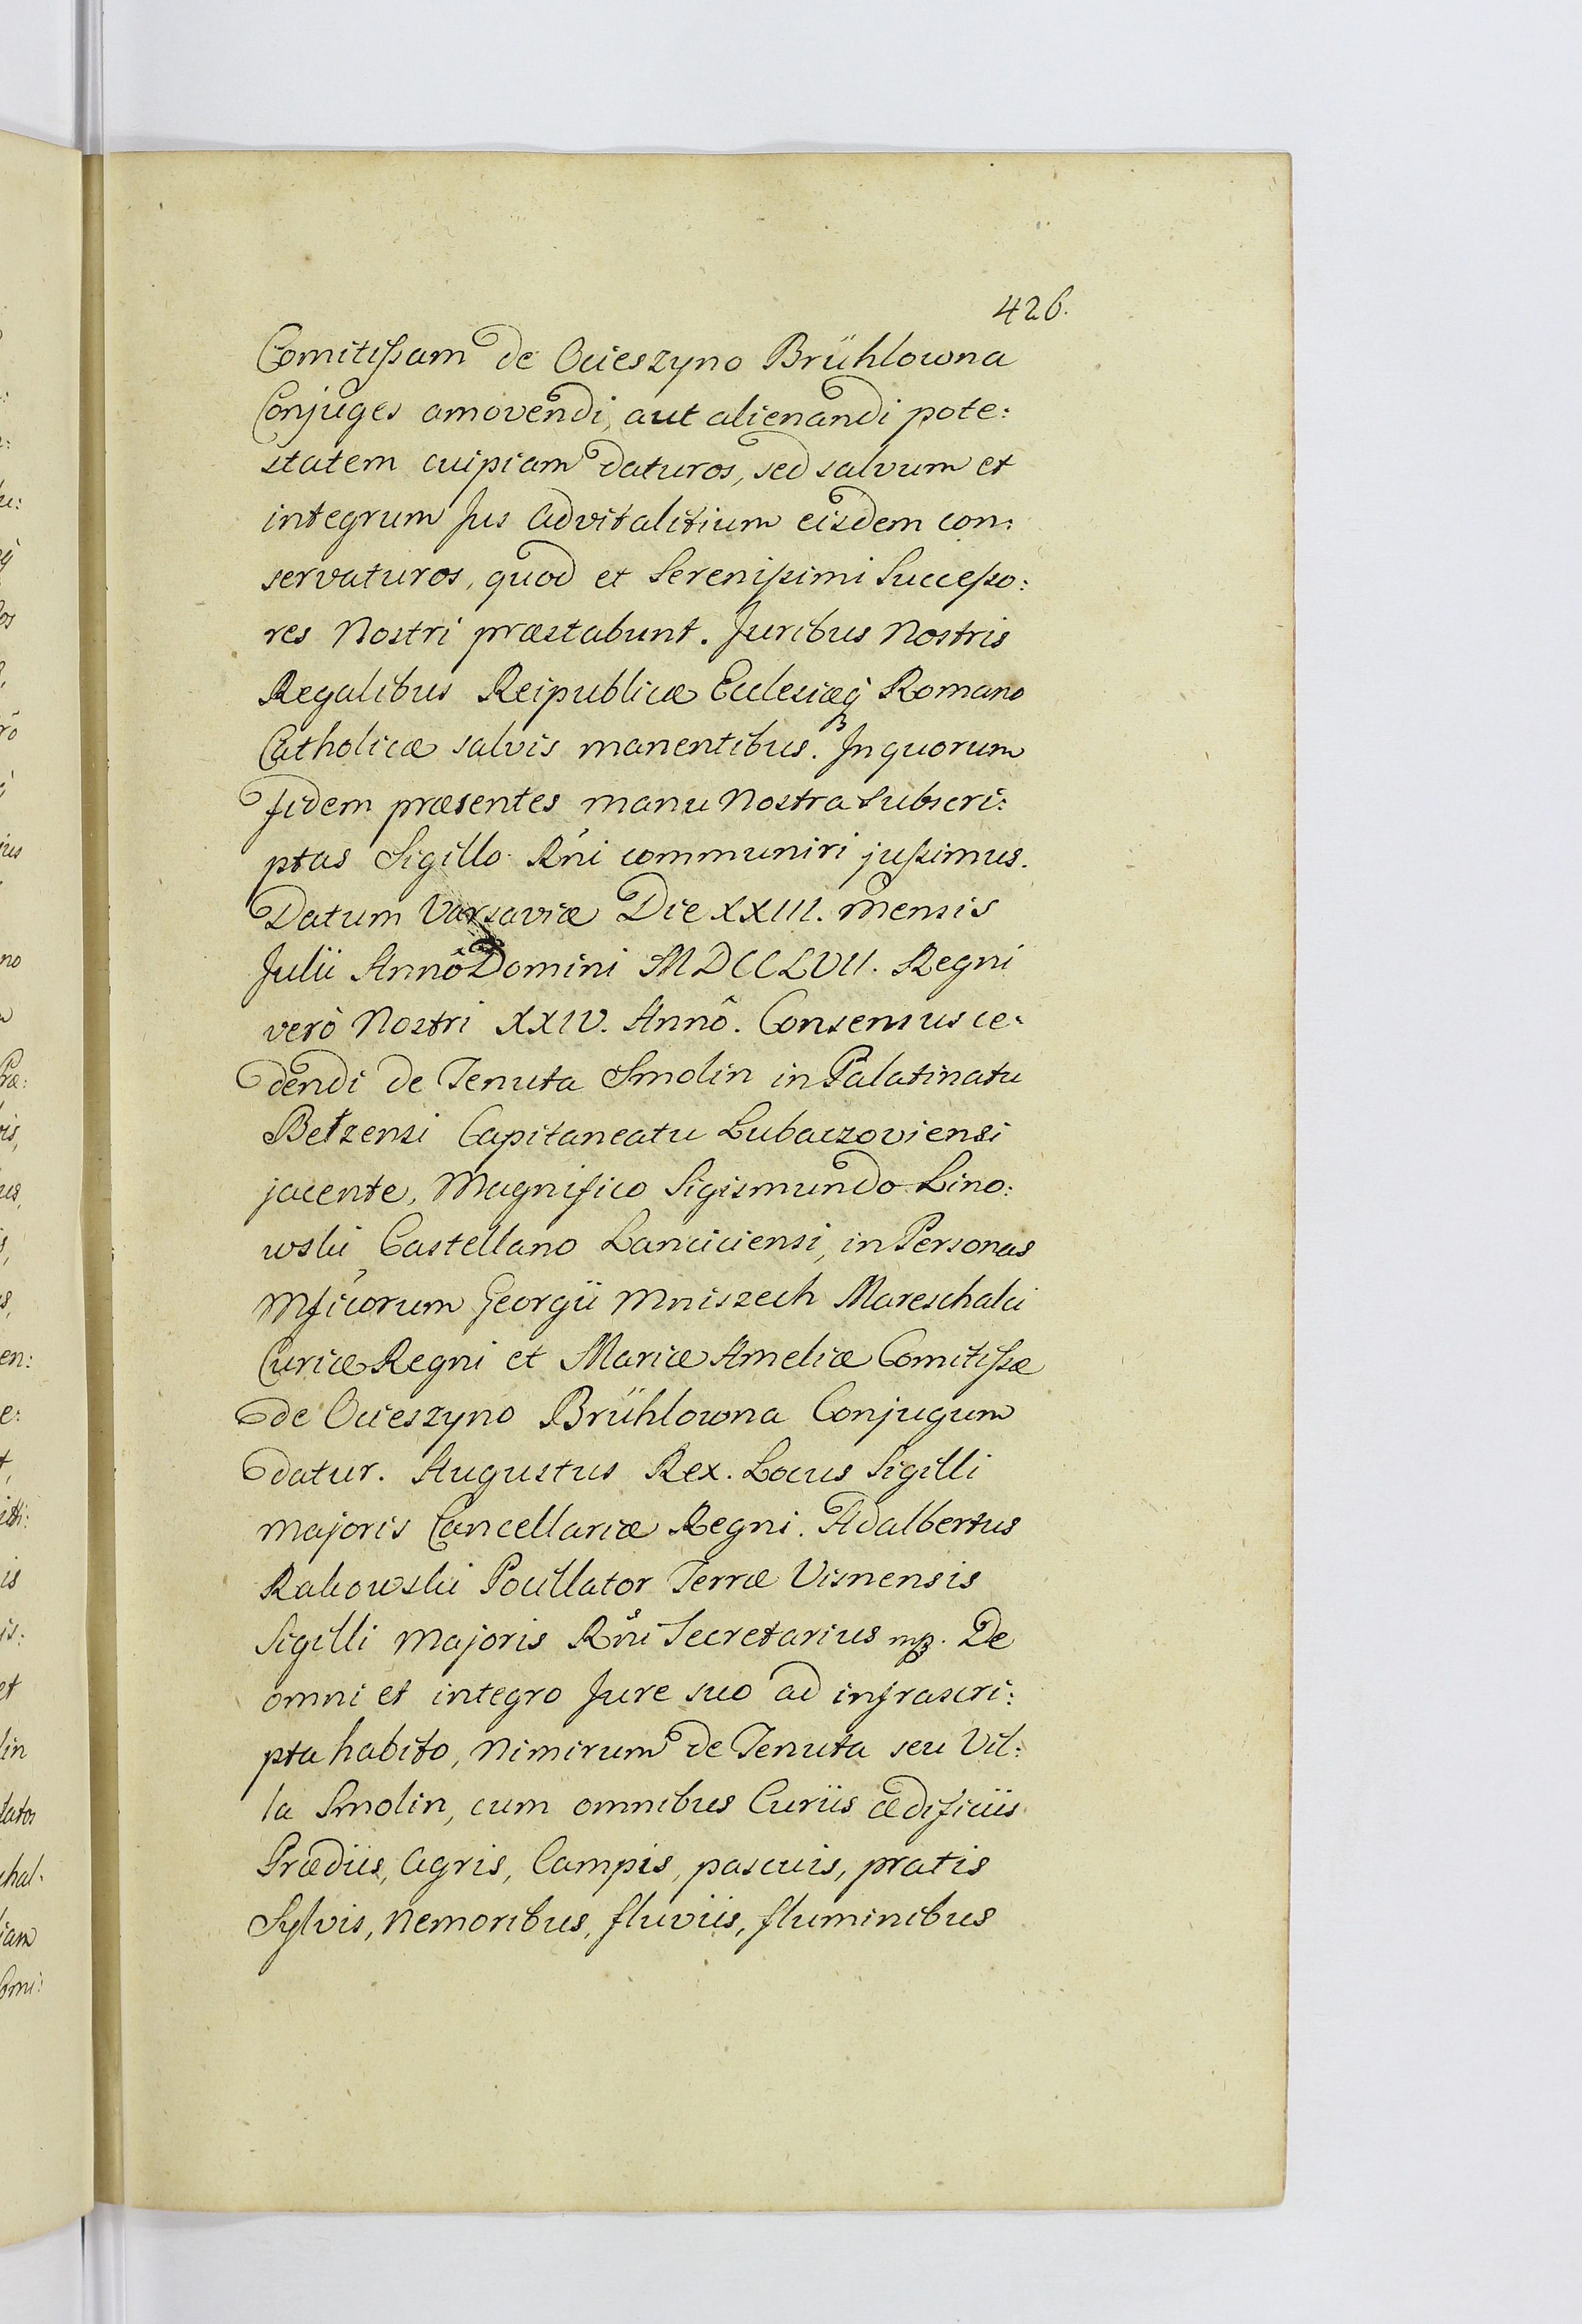 426.
Comitissam de Ocieszyno Brühlowna
Conjuges amovendi, aut alienandi pote:
statem cuipiam daturos, sed salvum et
integrum Jus Advitalitium eisdem con:
servaturos, quod et Serenissimi Successo:
res Nostri præstabunt. Juribus Nostris
Regalibus Reipublicæ Ecclesiæq̃ Romano
Catholicæ salvis manentibus. In quorum
fidem præsentes manu Nostra Subscri:
ptas Sigillo Rńi communiri jussimus.
Datum Varsaviæ Die XXIII. mensis
Julii Annô Domini MDCCLVII. Regni
verò Nostri XXIV. Annô. Consensus ce:
dendi de Tenuta Smolin in Palatinatu
Bełzensi Capitaneatu Lubaczoviensi
jacente, Magnifico Sigismundo Lino:
wski Castellano Lanciciensi, in Personas
Mficorum Georgii Mniszech Mareschalci
Curiæ Regni et Mariæ Ameliæ Comitissæ
de Ocieszyno Brühlowna Conjugum
datur. Augustus Rex. Locus Sigilli
majoris Cancellariæ Regni. Adalbertus
Rakowski Pocillator Terræ Visnensis
Sigilli Majoris Rńi Secretarius mp. De
omni et integro Jure suo ad infrascri:
pta habito, nimirum de Tenuta seu Vil:
la Smolin, cum omnibus Curiis ædificiis
Prædiis, Agris, Campis, pascuis, pratis
Sylvis, Nemoribus, fluviis, fluminibus